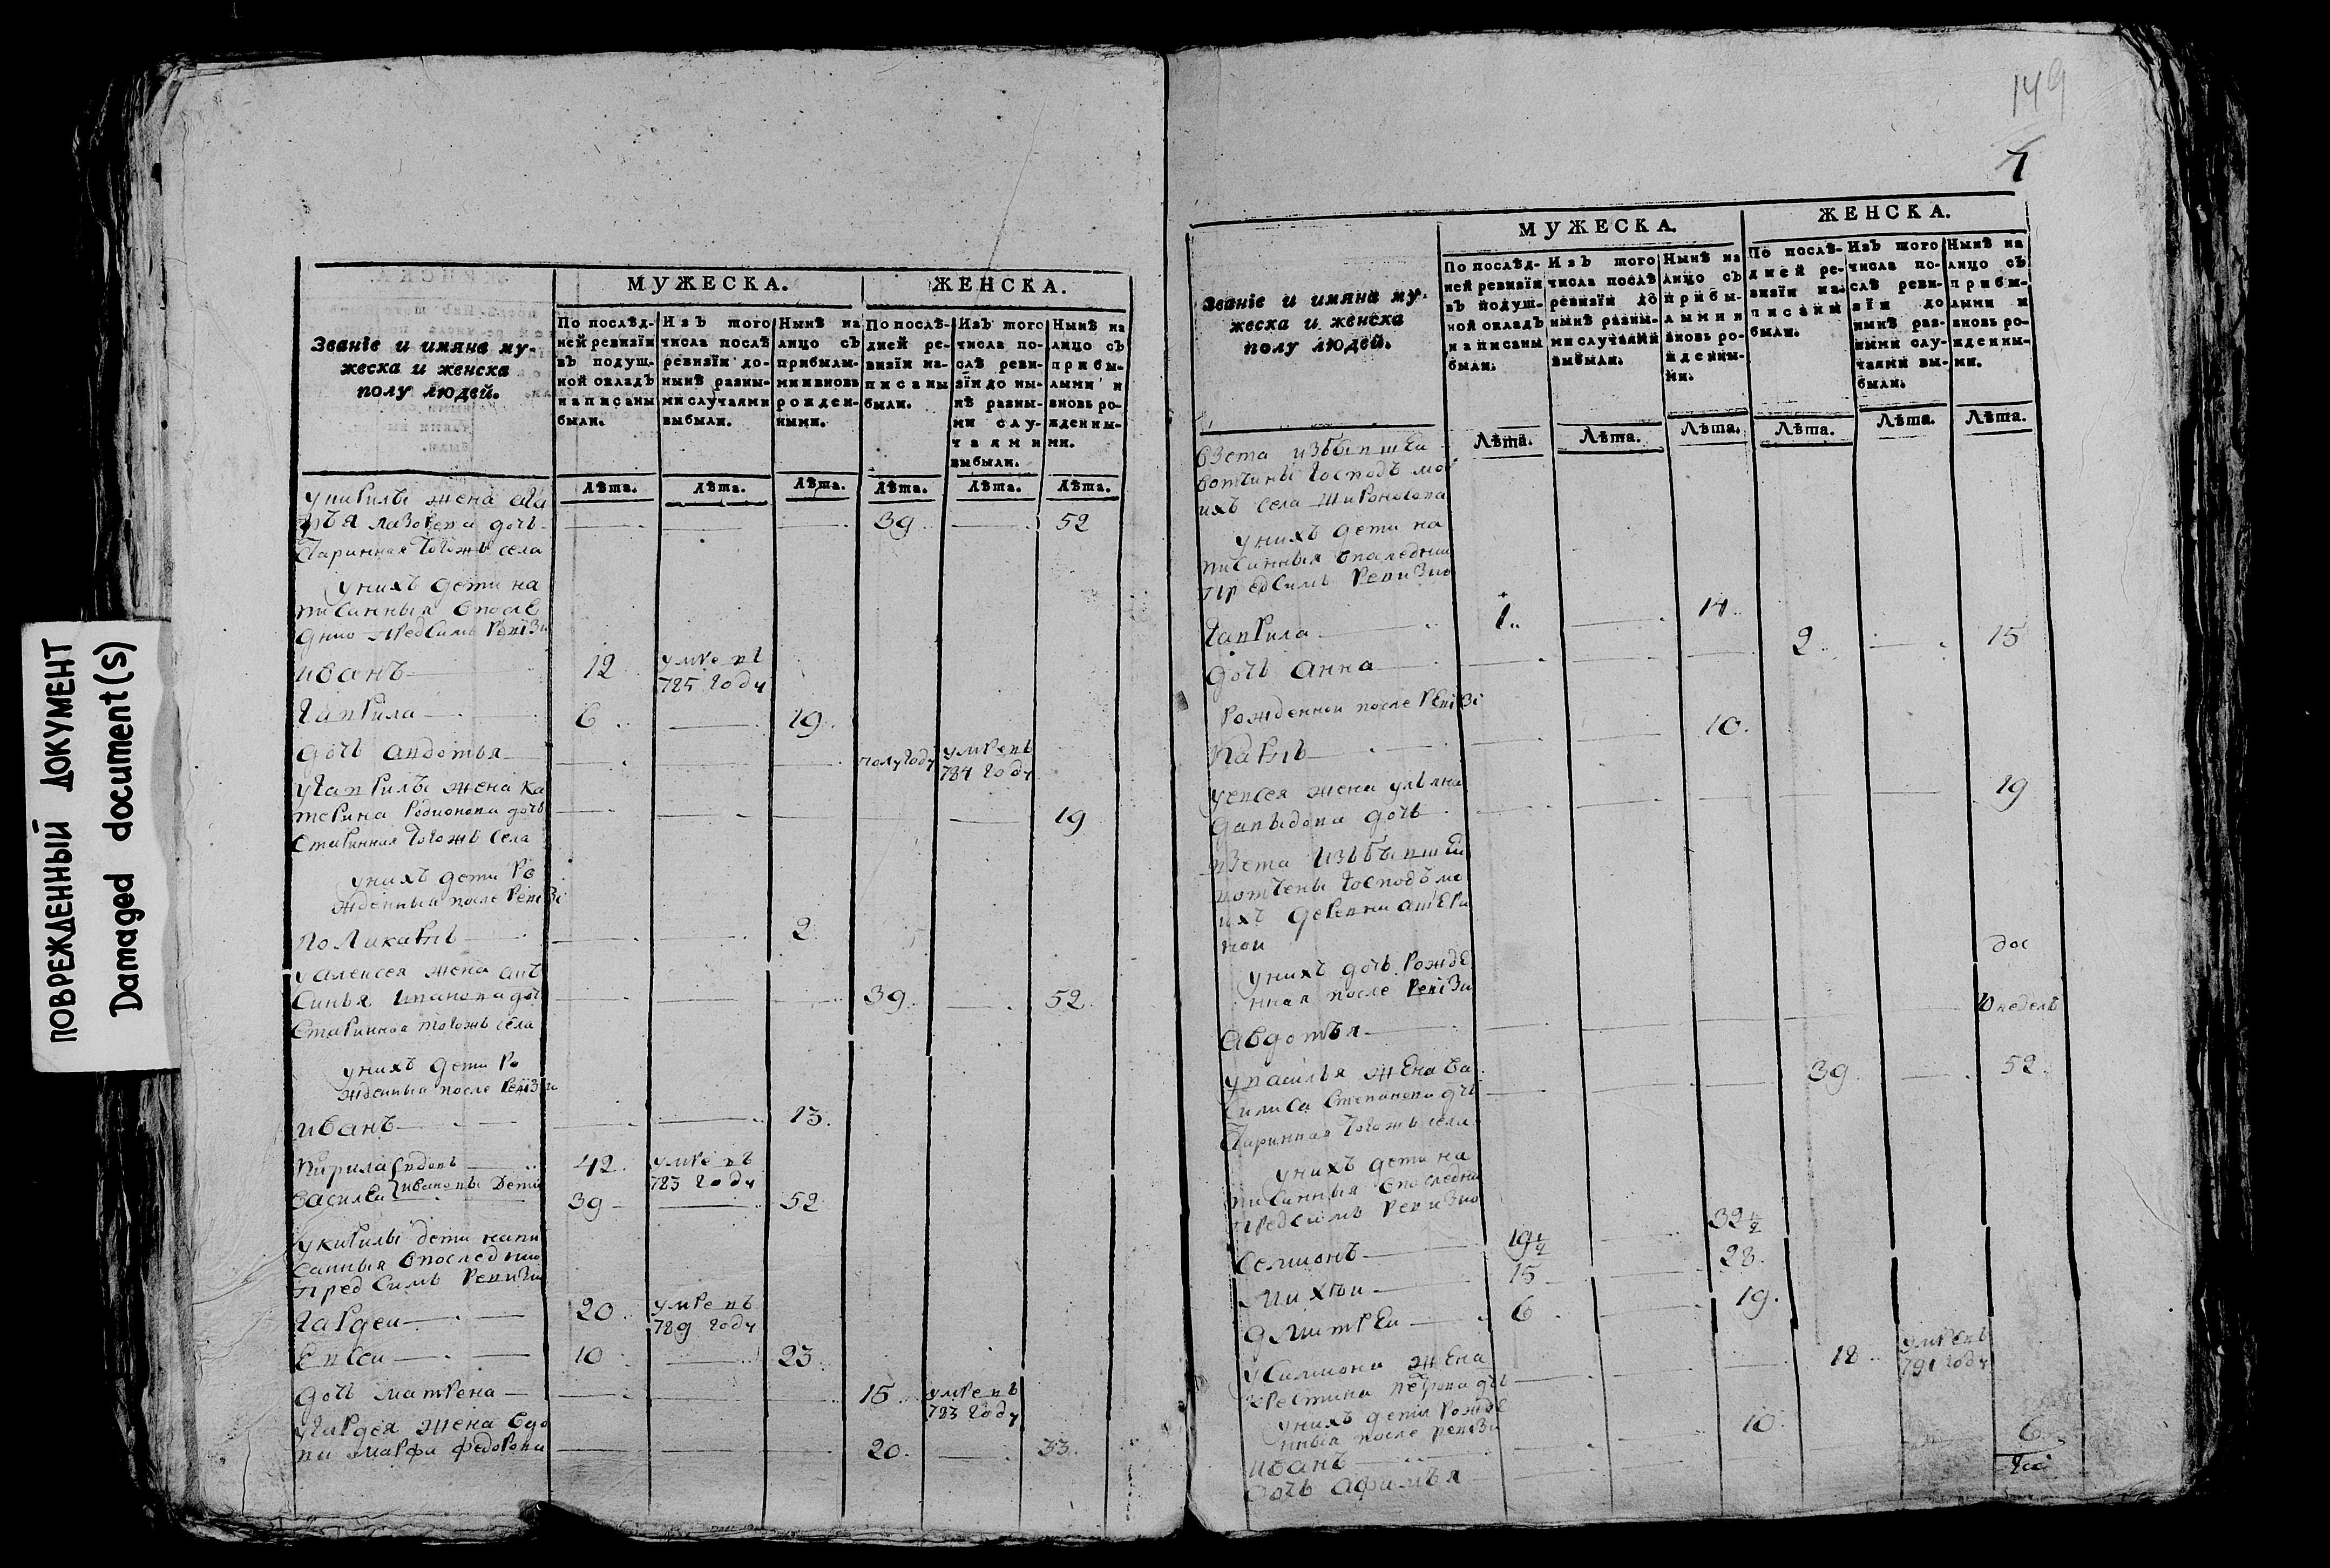 ПОВРЕЖДЕННЫЙ ДОКУМЕНТ
Damaged document(s)
МУЖЕСКА. ЖЕНСКА.
Званіе и имяна му-
жеска и женска
полу людей.
По послѣд-
ней ревизіи
въ подуш-
ной окладъ
написаны
были.
Изъ того
числа послѣ
ревизіи до-
нынѣ разны-
ми случаями
выбыли.
Нынѣ на
лицо съ
прибылы-
ми и вновь
рожден-
ными.
По послѣ-
дней ре-
визіи на-
писаны
были.
Изъ того
числа по-
слѣ реви-
зіи до ны-
нѣ разны-
ми слу-
чаями
выбыли.
Нынѣ на
лицо съ
прибы-
лыми и
вновь ро-
жденны-
ми.
Лѣта. Лѣта. Лѣта. Лѣта. Лѣта. Лѣта.
жена
дочь 39 52
тогожъ села
унихъ дети на
писанныя впосле
днюю предсимъ ревизи
иванъ 12 умре въ
785 году
гаврила 6 19
дочь авдотья полугоду умре въ
784 году
угаврилы жена ка
терина родионова дочь 19
старинная тогожъ села
унихъ дети ро
жденныя после ревизи
поликарпъ 2
уалексея жена
иванова дочь 39 52
старинная тогожъ села
унихъ дети ро
жденныя после ревизи
иванъ 13
кирила вдовъ 42 умре въ
783 году
василеи ивановы дети 39 52
укирилы дети напи
санныя впоследнюю
пред симъ ревизию
гардеи 20 умре въ
789 году
евсеи 10 23
дочь матрена 15 умре въ
783 году
угардея жена вдо
ва марфа федорова 20 33
149
7
МУЖЕСКА. ЖЕНСКА.
Званіе и имяна му-
жеска и женска
полу людей.
По послѣд-
ней ревизіи
въ подуш-
ной окладъ
написаны
были.
Изъ того
числа послѣ
ревизіи до
нынѣ разны-
ми случаями
выбыли.
Нынѣ на
лицо съ
прибы-
лыми и
вновь ро-
жденны-
ми.
По послѣ-
дней ре-
визіи на-
писаны
были.
Изъ того
числа по-
слѣ реви-
зіи до
нынѣ раз-
ными слу-
чаями вы-
были.
Нынѣ на
лицо съ
прибы-
лыми и
вновь ро-
жденны-
ми.
Лѣта. Лѣта. Лѣта. Лѣта. Лѣта. Лѣта.
взета
вотчины господъ мо
ихъ села
унихъ дети на
писанныя впоследнюю
предсимъ ревизию
гаврила 1 14
дочь анна 2 15
рожденной после ревизи
павелъ 10
уевсея жена ульяна
давыдова дочь 19
взета
вотчены господъ мо
ихъ деревни
унихъ дочь рожде
нная после ревизи
авдотья 10 недель
увасилья жена ва
силиса степанова дочь 39 52
тогожъ села
унихъ дети на
писанныя впоследнию
предсимъ ревизию
семионъ 19½ 32½
михеи 15 28
дмитреи 6 19
усимиона жена
крестина петрова дчь 18 умре въ
791 году
унихъ дети рожде
нныя после ревизи
иванъ 10
дочь афимья 6